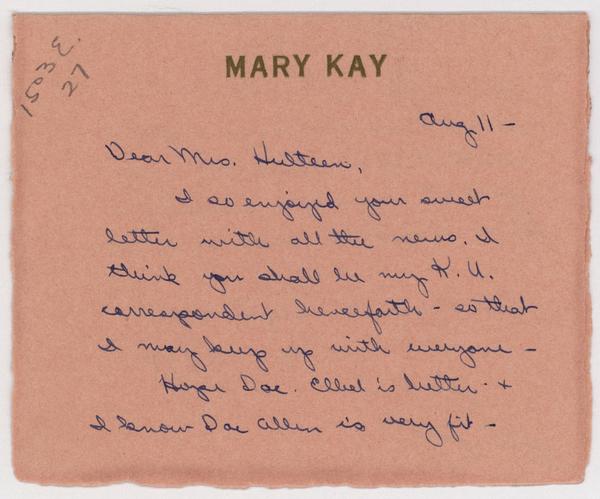 1503 E.
27
MARY KAY
Aug 11 -
Dear Mrs. Hulteen,
I so enjoyed your sweet
letter with all the news. I
think you shall be my K. U.
correspondent henceforth - so that
I may keep up with everyone -
Hope Doc. Elbel is better - +
I know Doc Allen is very fit -